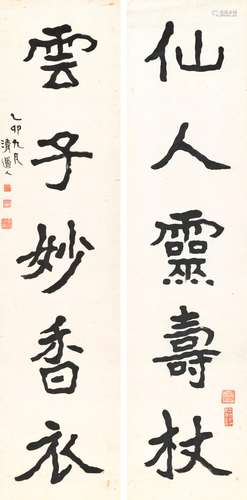 仙人靈壽杖
雲子妙香衣
乙卯九月
清道人